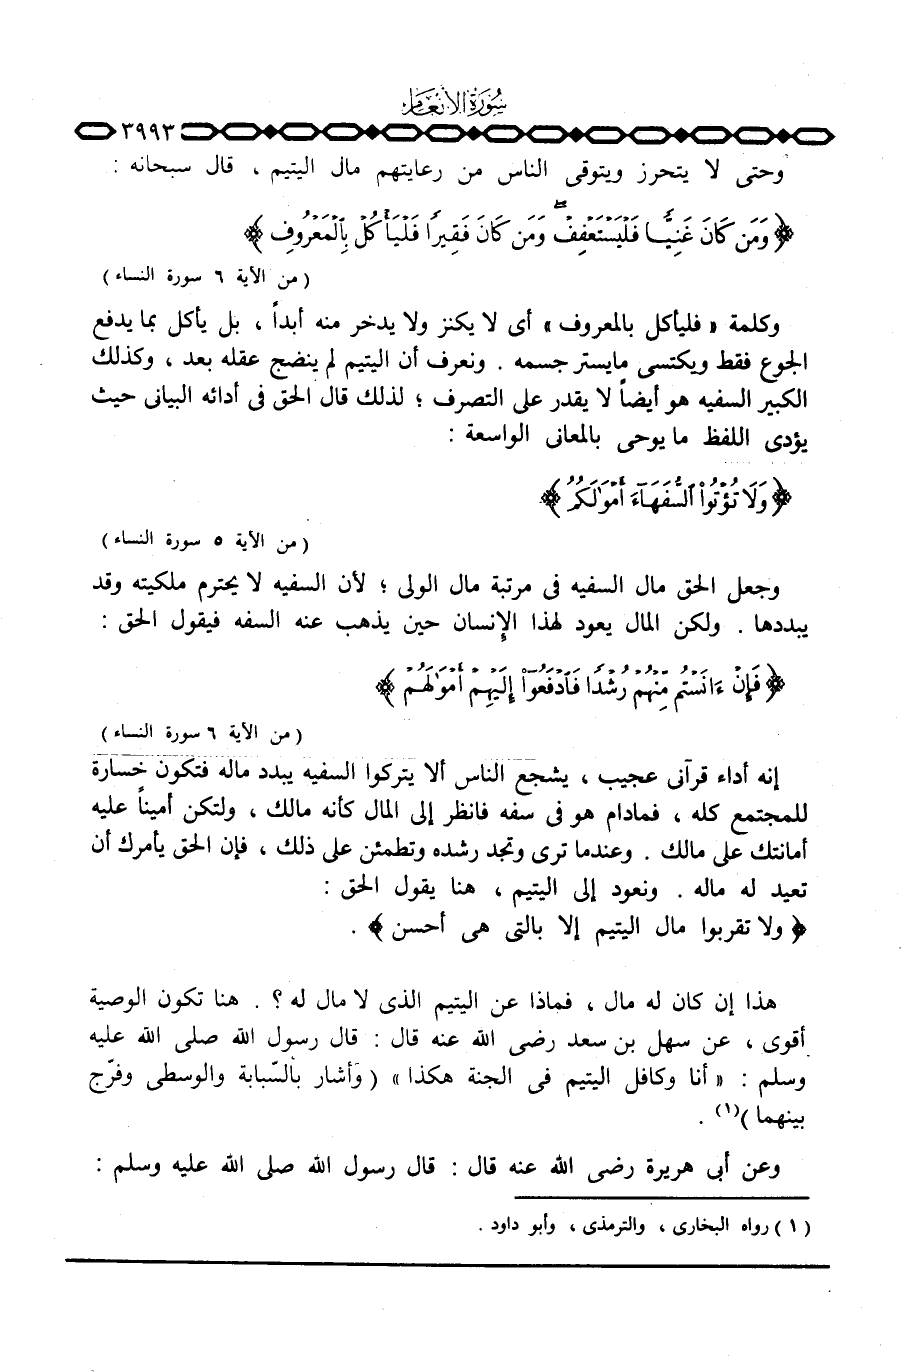 سُورَةُ الأَنْعَامِ
٣٩٩٣
وحتى لا يتحرز ويتوقى الناس من رعايتهم مال اليتيم ، قال سبحانه :
﴿ وَمَن كَانَ غَنِيًّا فَلْيَسْتَعْفِفْ ۖ وَمَن كَانَ فَقِيرًا فَلْيَأْكُلْ بِالْمَعْرُوفِ ﴾
( من الآية ٦ سورة النساء )
وكلمة « فليأكل بالمعروف » أى لا يكنز ولا يدخر منه أبداً ، بل يأكل بما يدفع
الجوع فقط ويكتسى مايستر جسمه . ونعرف أن اليتيم لم ينضج عقله بعد ، وكذلك
الكبير السفيه هو أيضاً لا يقدر على التصرف ؛ لذلك قال الحق فى أدائه البيانى حيث
يؤدى اللفظ ما يوحى بالمعانى الواسعة :
﴿ وَلَا تُؤْتُوا۟ السُّفَهَآءَ أَمْوَٰلَكُمُ ﴾
( من الآية ٥ سورة النساء )
وجعل الحق مال السفيه فى مرتبة مال الولى ؛ لأن السفيه لا يحترم ملكيته وقد
يبددها . ولكن المال يعود لهذا الإنسان حين يذهب عنه السفه فيقول الحق :
﴿ فَإِنْ ءَانَسْتُم مِّنْهُمْ رُشْدًا فَادْفَعُوٓا۟ إِلَيْهِمْ أَمْوَٰلَهُمْ ﴾
( من الآية ٦ سورة النساء )
إنه أداء قرآنى عجيب ، يشجع الناس ألا يتركوا السفيه يبدد ماله فتكون خسارة
للمجتمع كله ، فمادام هو فى سفه فانظر إلى المال كأنه مالك ، ولتكن أميناً عليه
أمانتك على مالك . وعندما ترى وتجد رشده وتطمئن على ذلك ، فإن الحق يأمرك أن
تعيد له ماله . ونعود إلى اليتيم ، هنا يقول الحق :
﴿ ولا تقربوا مال اليتيم إلا بالتى هى أحسن ﴾ .
هذا إن كان له مال ، فماذا عن اليتيم الذى لا مال له ؟ . هنا تكون الوصية
أقوى ، عن سهل بن سعد رضى الله عنه قال : قال رسول الله صلى الله عليه
وسلم : « أنا وكافل اليتيم فى الجنة هكذا » ( وأشار بالسّبابة والوسطى وفرّج
بينهما )(١) .
وعن أبى هريرة رضى الله عنه قال : قال رسول الله صلى الله عليه وسلم :
( ١ ) رواه البخارى ، والترمذى ، وأبو داود .